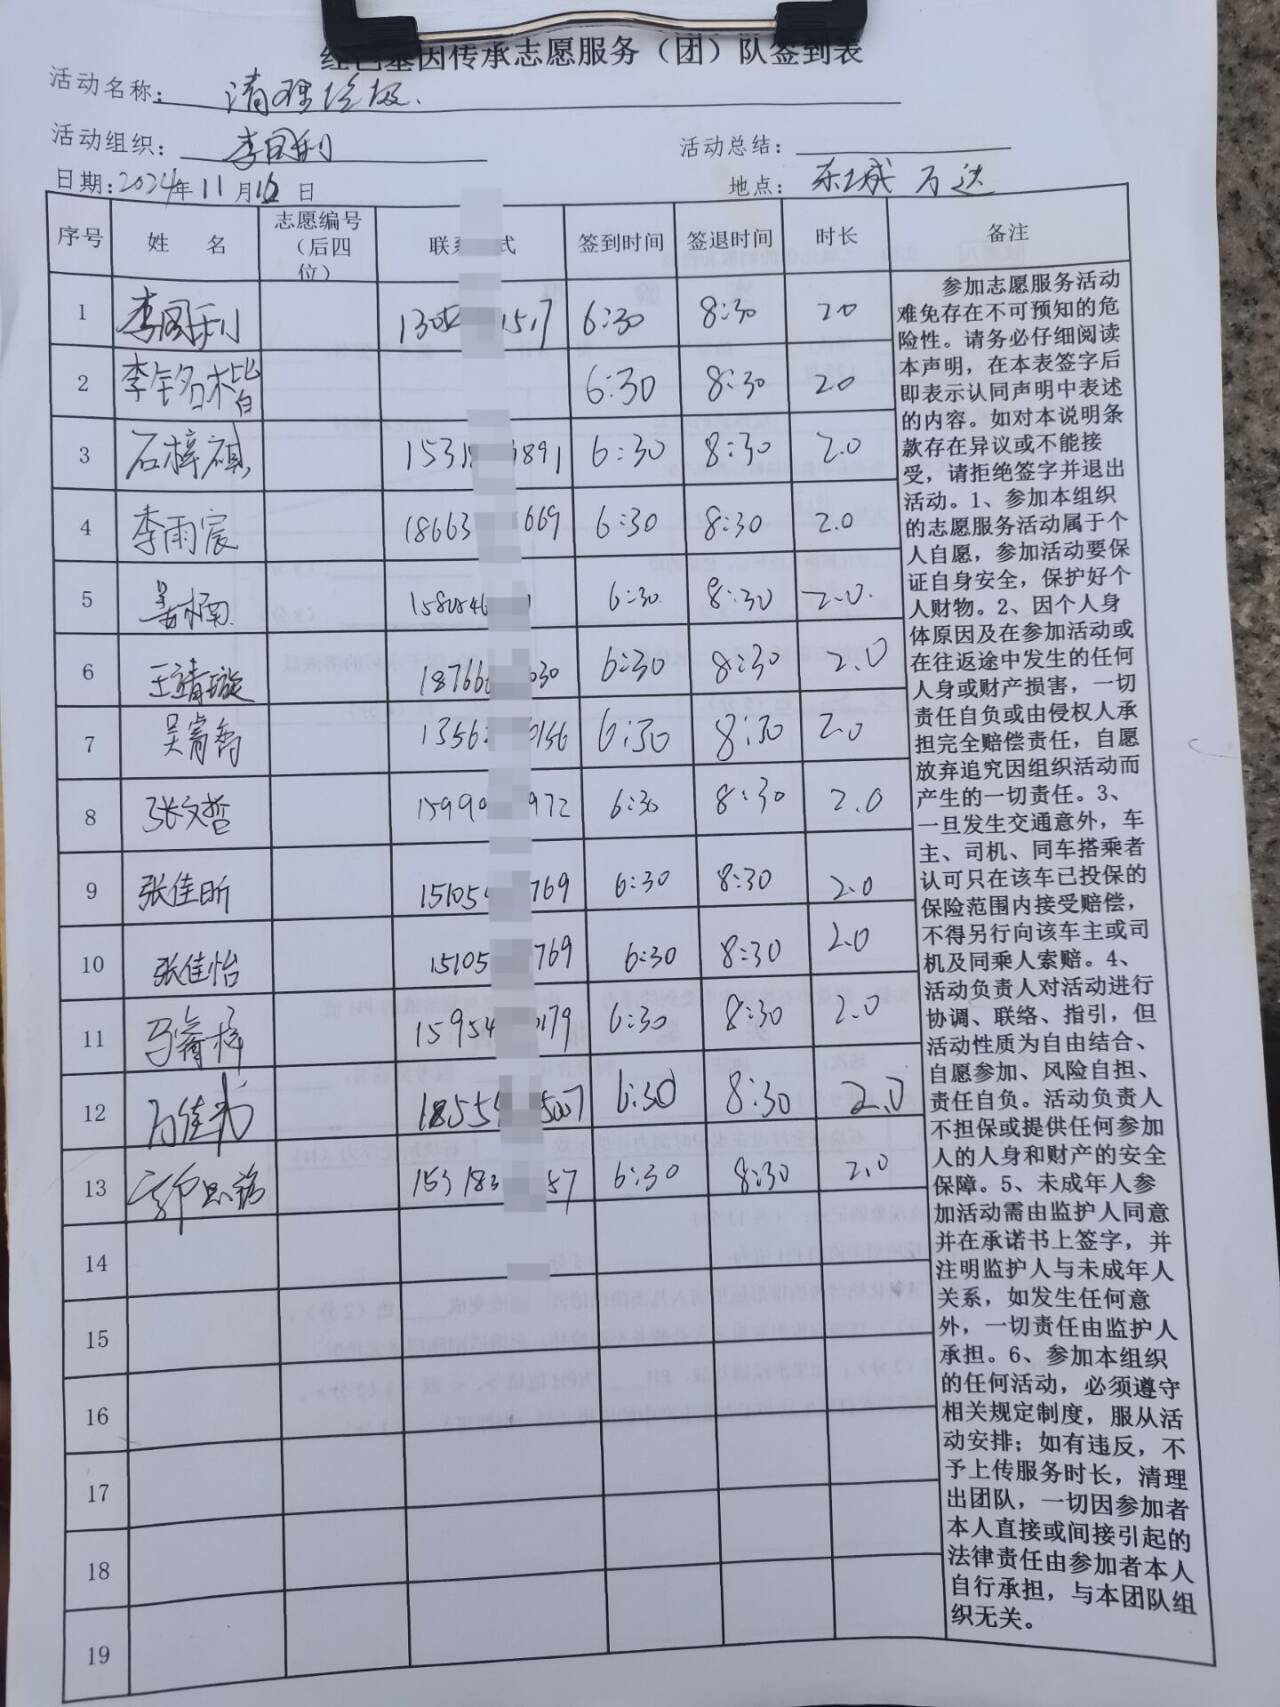 红色基因传承志愿服务（团）队签到表
活动名称： 清理垃圾.
活动组织： 李国利 活动总结：
日期：2024年11月16日 地点： 东城万达
序号 姓 名 志愿编号（后四位） 联系 式 签到时间 签退时间 时长 备注
1 李国利 1305 1517 6:30 8:30 2.0
2 李铭楷 6:30 8:30 2.0
3 石梓祺 1531 3891 6:30 8:30 2.0
4 李雨宸 18663 669 6:30 8:30 2.0
5 姜楠 1580546 1 6:30 8:30 2.0
6 王靖璇 18766 030 6:30 8:30 2.0
7 吴 1356 156 6:30 8:30 2.0
8 张文哲 1599 972 6:30 8:30 2.0
9 张佳昕 15105 769 6:30 8:30 2.0
10 张佳怡 15105 769 6:30 8:30 2.0
11 马 梓 15954 179 6:30 8:30 2.0
12 1855 5007 6:30 8:30 2.0
13 153183 57 6:30 8:30 2.0
14
15
16
17
18
19
参加志愿服务活动
难免存在不可预知的危
险性。请务必仔细阅读
本声明，在本表签字后
即表示认同声明中表述
的内容。如对本说明条
款存在异议或不能接
受，请拒绝签字并退出
活动。1、参加本组织
的志愿服务活动属于个
人自愿，参加活动要保
证自身安全，保护好个
人财物。2、因个人身
体原因及在参加活动或
在往返途中发生的任何
人身或财产损害，一切
责任自负或由侵权人承
担完全赔偿责任，自愿
放弃追究因组织活动而
产生的一切责任。3、
一旦发生交通意外，车
主、司机、同车搭乘者
认可只在该车已投保的
保险范围内接受赔偿，
不得另行向该车主或司
机及同乘人索赔。4、
活动负责人对活动进行
协调、联络、指引，但
活动性质为自由结合、
自愿参加、风险自担、
责任自负。活动负责人
不担保或提供任何参加
人的人身和财产的安全
保障。5、未成年人参
加活动需由监护人同意
并在承诺书上签字，并
注明监护人与未成年人
关系，如发生任何意
外，一切责任由监护人
承担。6、参加本组织
的任何活动，必须遵守
相关规定制度，服从活
动安排；如有违反，不
予上传服务时长，清理
出团队，一切因参加者
本人直接或间接引起的
法律责任由参加者本人
自行承担，与本团队组
织无关。